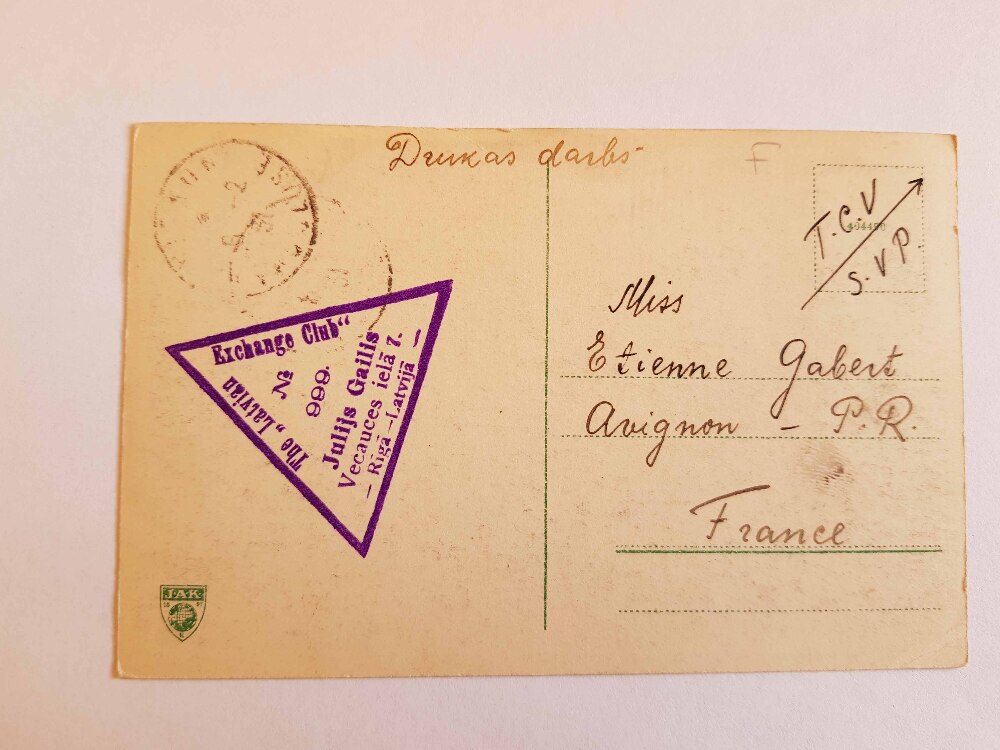 Drukas darbs
F
T.C.V
S.V.P.
Miss
Etienne Gabert
Avignon - P.R.
France
The „Latvian
Exchange Club“
№
999.
Julijs Gailis
Vecauces ielā 7.
– Rīgā – Latvijā –
J.A.K.